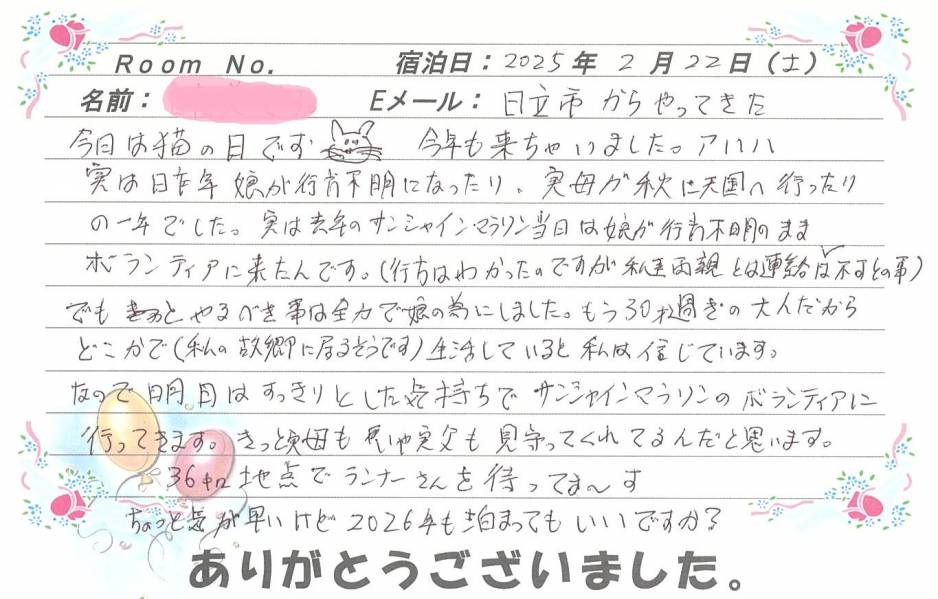 Room No. 宿泊日：2025年 2月22日（土）
名前： Eメール：日立市からやってきた
今日は猫の日です 今年も来ちゃいました。アハハ
実は昨年娘が行方不明になったり、実母が秋に天国へ行ったり
の一年でした。実は去年のサンシャインマラソン当日は娘が行方不明のまま
ボランティアに来たんです。（行方はわかったのですが私達両親とは連絡は不可との事）
でも やるべき事は全力で娘の為にしました。もう30才過ぎの大人だから
どこかで（私の故郷に居るそうです）生活していると私は信じています。
なので明日はすっきりとした気持ちでサンシャインマラソンのボランティアに
行ってきます。きっと実母も 実父も見守ってくれてるんだと思います。
36キロ地点でランナーさんを待ってま〜す
ちょっと気が早いけど2026年も泊まってもいいですか？
ありがとうございました。